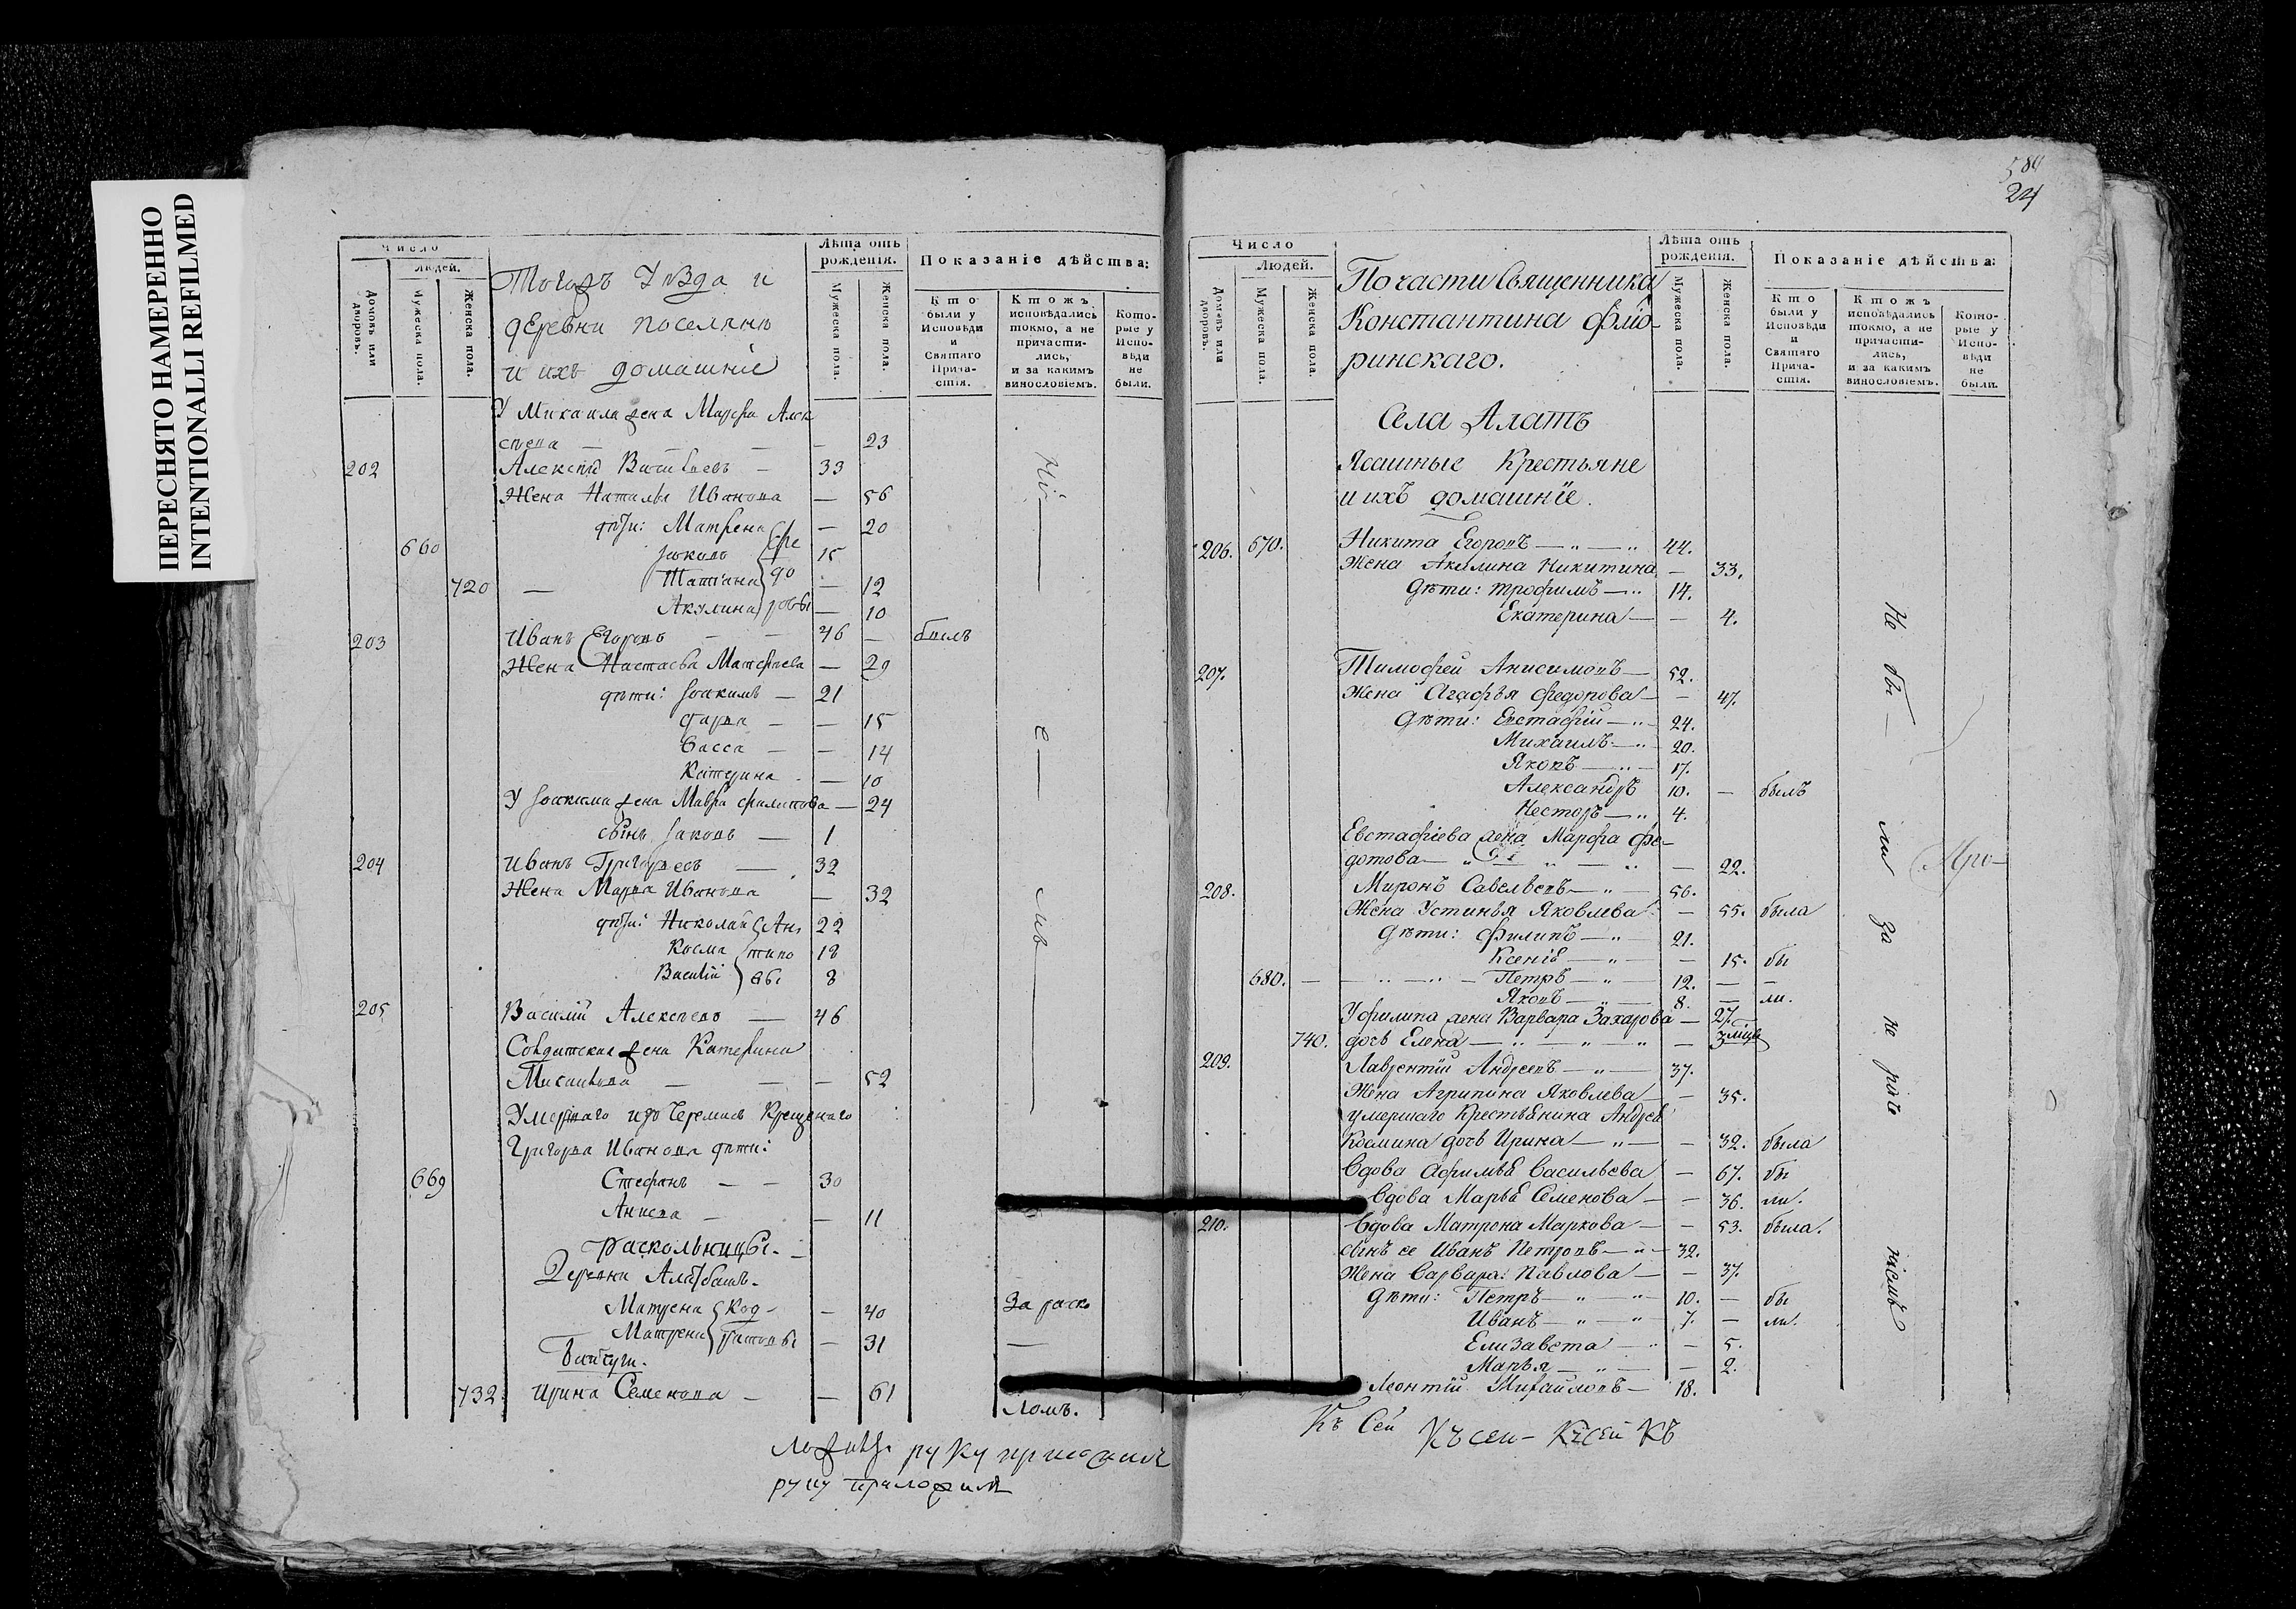 ПЕРЕСНЯТО НАМЕРЕННО
INTENTIONALLI REFILMED
Число
Людей.
Домовъ или дворовъ.
Мужеска пола.
Женска пола.
деревни
и ихъ домашнïе
Лѣта отъ рожденïя.
Мужеска пола.
Женска пола.
Показанïе дѣйства:
Кто были у Исповѣди и Святаго Прича-стïя.
Ктожъ исповѣдались токмо, а не причасти-лись, и за какимъ винословïемъ.
Кото-рые у Испо-вѣди не были.
У Михаила жена Марфа Алек
сѣева — — — 23
202 Алексѣй — 33
Жена Наталья Иванова — 56
дѣти: Матрена — 20
660 Iаковъ 15
720 — Татïана — 12
Акулина — 10
203 Иванъ Егоровъ — — 46 — былъ
Жена Настасья Матфѣева — 29
дѣти: Iоакимъ — 21
— — 15
Васса — — 14
Катерина — 10
У Iоакима жена Мавра Филипова — 24
сынъ Iаковъ — 1
204 Иванъ Григорьевъ — 32
Жена Марья Иванова — 32
дѣти: Николай 22
Косма 18
Василïй 8
205 Василïй Алексѣевъ — 46
Солдатская жена Катерина
— — — 52
Умершаго изъ Черемисъ Крещенаго
Григорья Иванова дѣти:
669 Стефанъ — — 30
— — 11
раскольницы. —
Деревни
Матрена — 40 За раско
Матрена — 31 —
732. Ирина Семенова — — 61
ломъ.
руку
руку приложилъ
24
Число
Людей.
Домовъ или дворовъ.
Мужеска пола.
Женска пола.
По части Священника
Константина Фло-
ринскаго.
Лѣта отъ рожденïя.
Мужеска пола.
Женска пола.
Показанïе дѣйства:
Кто были у Исповѣди и Святаго Прича-стïя.
Ктожъ исповѣдались токмо, а не причасти-лись, и за какимъ винословïемъ.
Кото-рые у Испо-вѣди не были.
Села Алатъ
Ясашные Крестьяне
и ихъ домашнïе.
206. 670. Никита Егоровъ — „ — „ 44.
Жена Акилина Никитина — 33.
Дѣти: Трофимъ — „ 14.
Екатерина — — 4.
207. Тимофей Анисимовъ — 52.
Жена Агафья Федорова — — 47.
Дѣти: Евстафïй — „ — 24.
Михаилъ — „ — 20.
Яковъ — „ — 17.
Александръ 10. — былъ
Несторъ — „ 4.
Евстафïева жена Марфа Фе-
дотова — „ — „ — „ — 22.
208. Миронъ Савельевъ — „ — 56.
Жена Устинья Яковлева — 55. была
Дѣти: Филипъ — „ — 21.
Ксенïя — „ — — 15. бы
680. — — „ — „ — Петръ — „ — 12. — —
Яковъ — „ — 8. — ли.
У Филипа жена Варвара Захарова — 27.
740. дочь Елена — „ — „ — „ — 3 мѣсяц
209. Лаврентïй Андреевъ — „ — 37.
Жена Агрипина Яковлева — — 35.
умершаго Крестьянина Андрея
Космина дочь Ирина — „ — — 32. была
Вдова Афимья Васильева — 67. бы
Вдова Марья Семенова — — 36. ли.
210. Вдова Матрона Маркова — — 53. была.
сынъ ее Иванъ Петровъ — „ — 32.
Жена Варвара Павлова — — 37.
Дѣти: Петръ — „ — „ — 10. — бы
Иванъ — „ — „ 7. — ли.
Елизавета — „ — 5.
Марья — „ — — 2.
Леонтïй Михайловъ — 18.
Не бы — ли за не
Къ Сей
Къ сей — Къ сей Къ